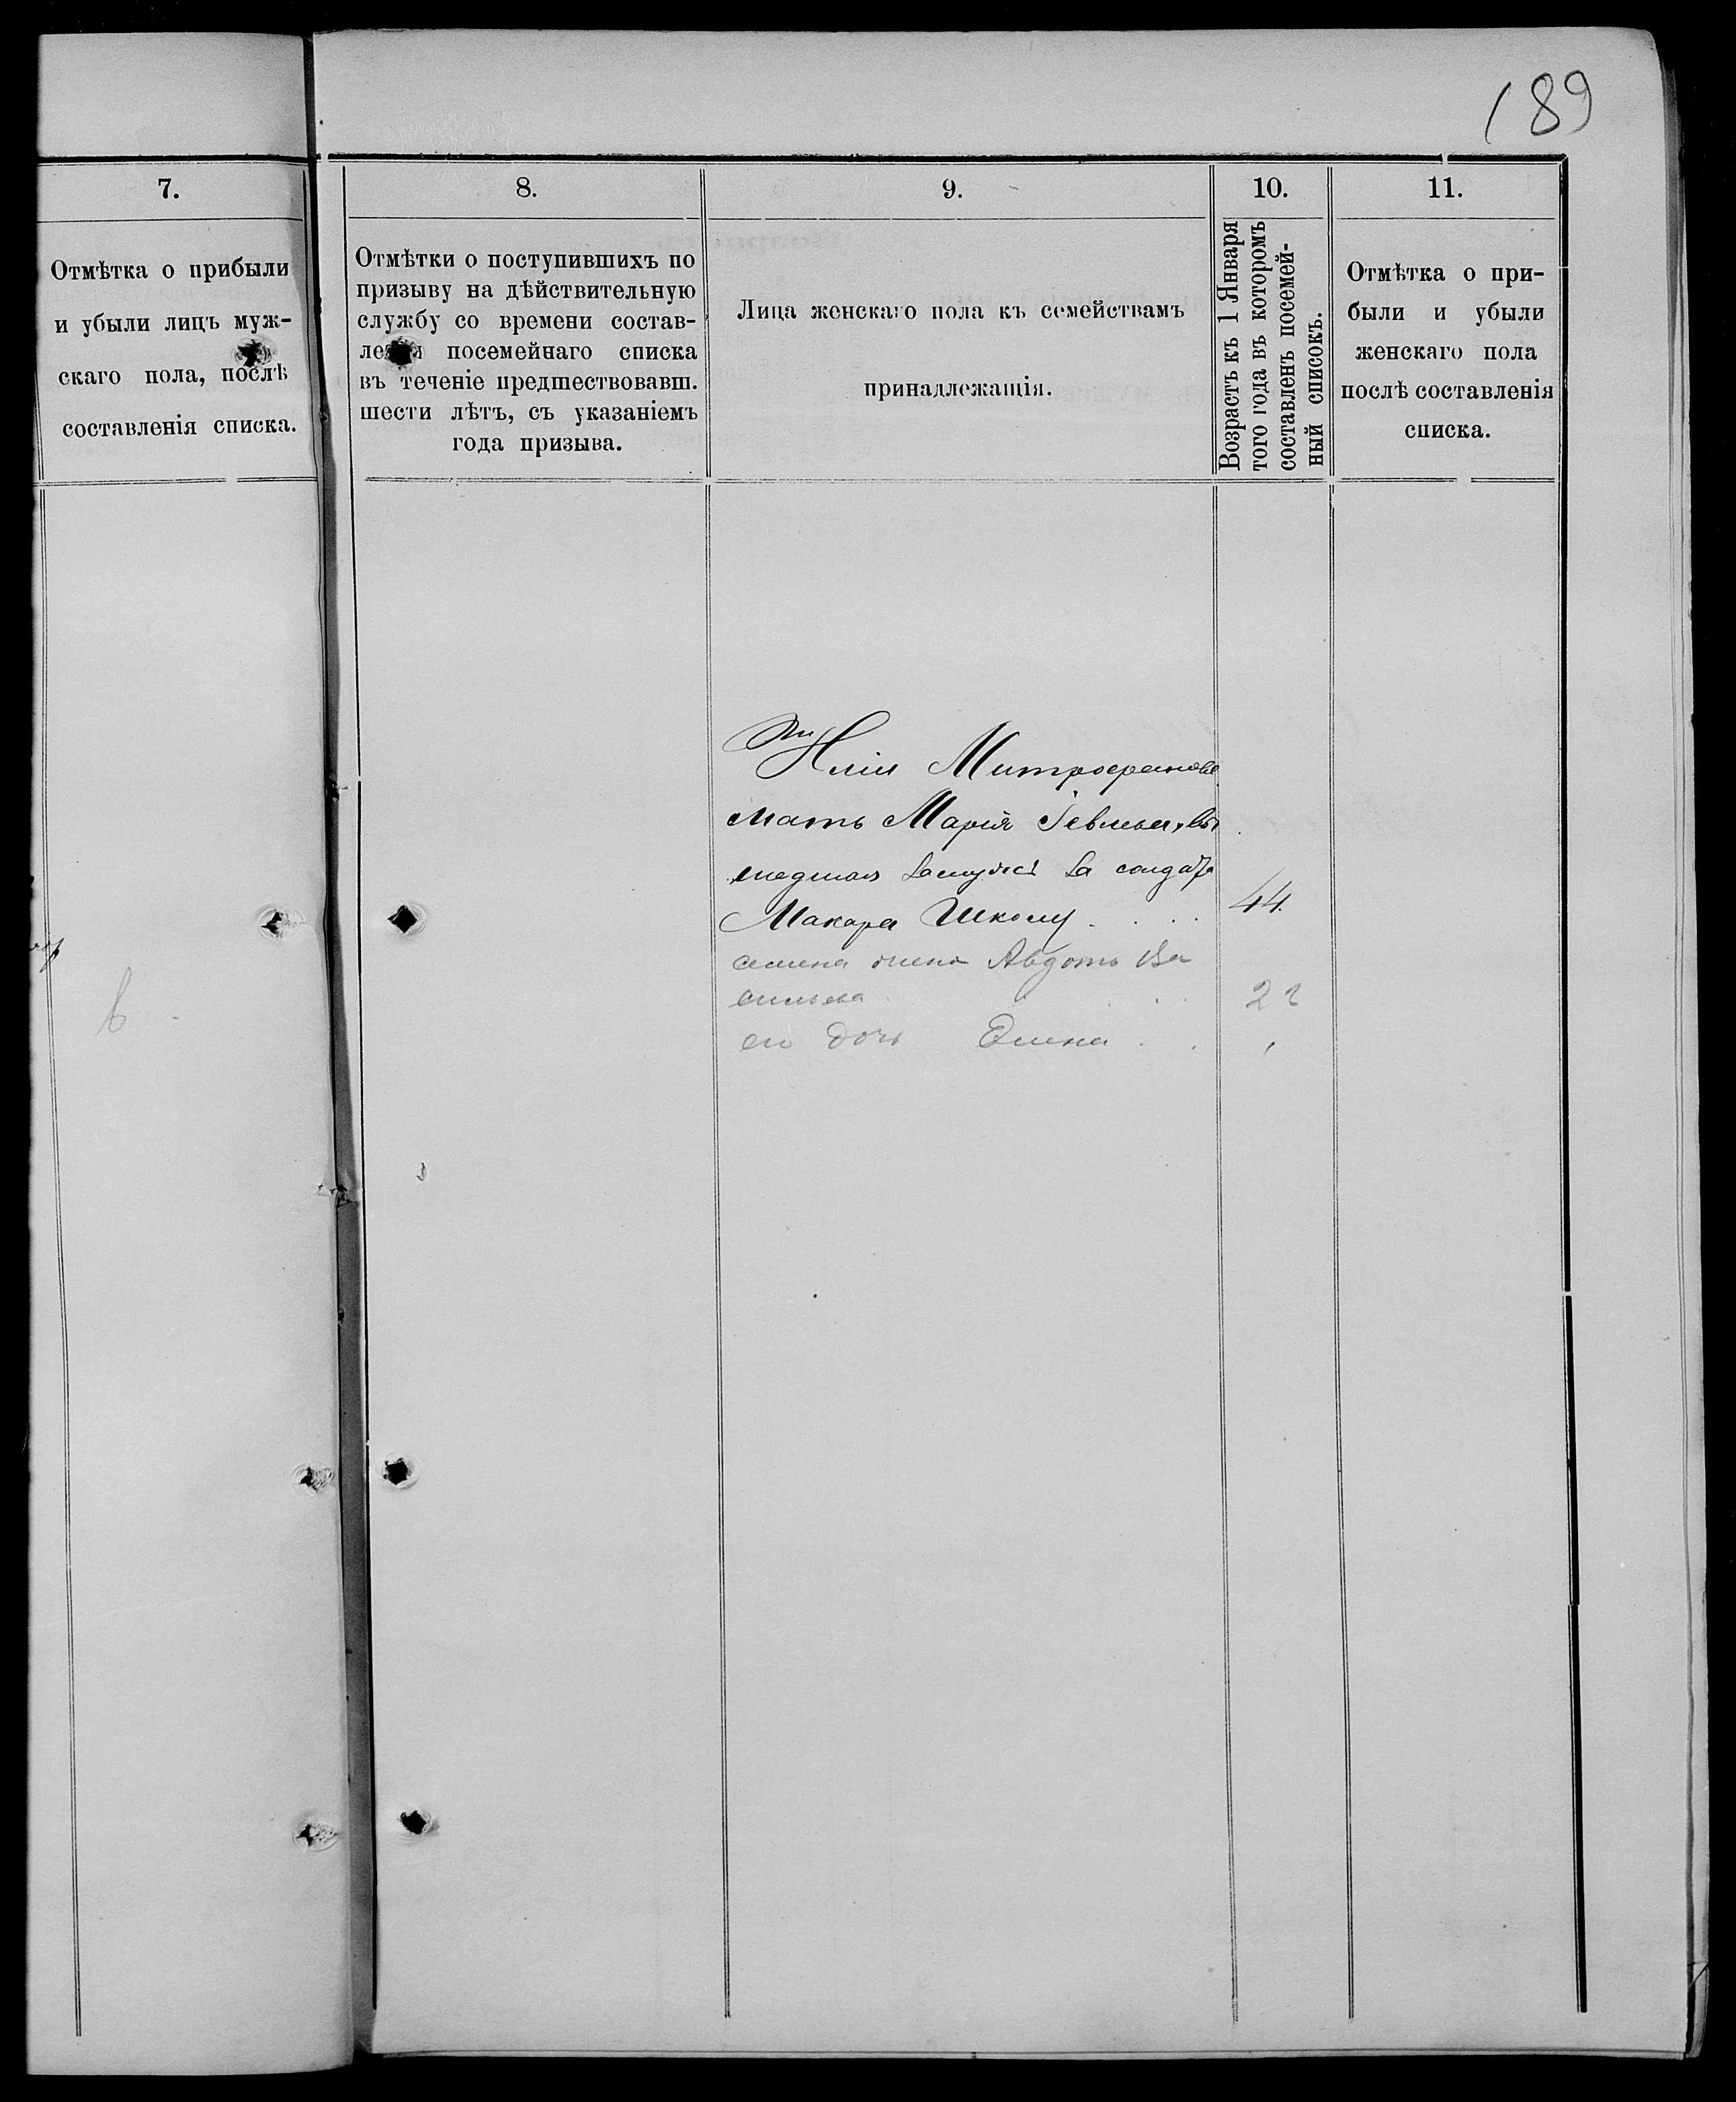 189
7.
Отмѣтка о прибыли
и убыли лицъ муж-
скаго пола, послѣ
составленія списка.
8.
Отмѣтки о поступившихъ по
призыву на дѣйствительную
службу со времени состав-
ленія посемейнаго списка
въ теченіе предшествовавш.
шести лѣтъ, съ указаніемъ
года призыва.
9.
Лица женскаго пола къ семействамъ
принадлежащія.
10.
Возрастъ къ 1 Января
того года въ которомъ
составленъ посемей-
ный списокъ.
11.
Отмѣтка о при-
были и убыли
женскаго пола
послѣ составленія
списка.
Митрофанова
мать Марія
шедшая замужъ за солдата
Макара Школу
44.
жена Авдотья Ва
сильева
22
его дочь Елена